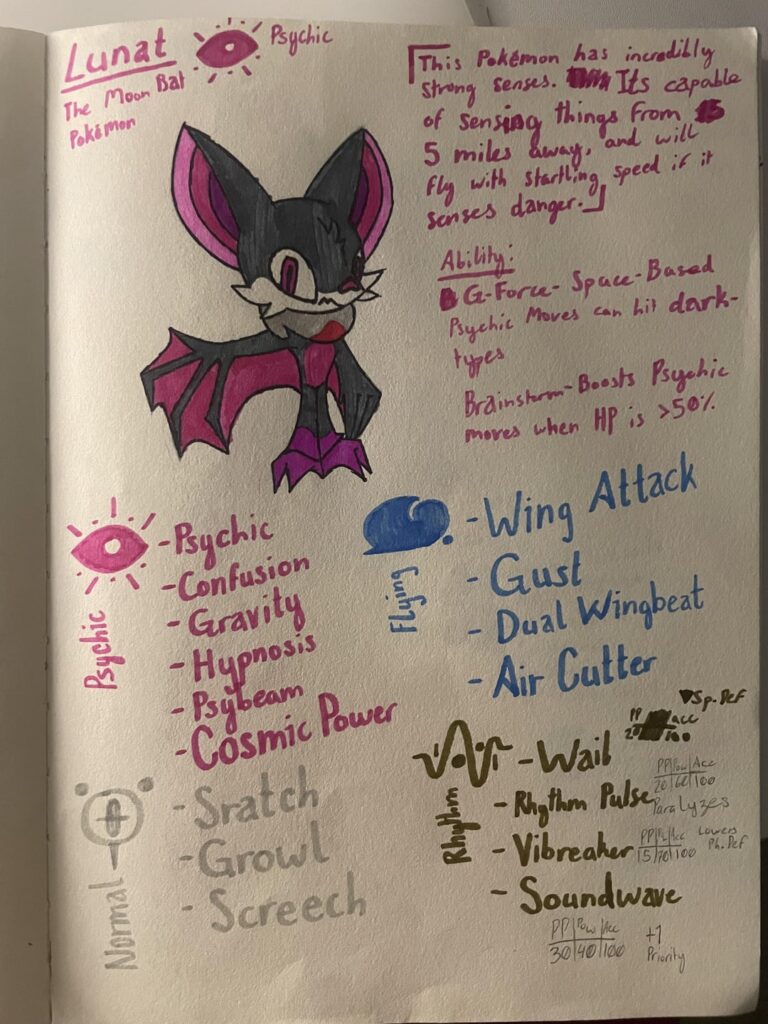 Lunat
Psychic
The Moon Bat
Pokémon
「This Pokémon has incredibly
strong senses. Its capable
of sensing things from
5 miles away, and will
fly with startling speed if it
senses danger.」
Ability:
G-Force- Space-Based
Psychic Moves can hit dark-
types
Brainstorm-Boosts Psychic
moves when HP is >50%
Psychic
-Psychic
-Confusion
-Gravity
-Hypnosis
-Psybeam
-Cosmic Power
Flying
-Wing Attack
- Gust
- Dual Wingbeat
- Air Cutter
Normal
-Sratch
-Growl
- Screech
Rhythm
-Wail
PP acc
20 100
▼Sp. Def
- Rhythm Pulse
PP|Pow|Acc
20|60|100
Paralyzes
- Vibreaker
PP|Pw|Acc
15|70|100
Lowers
Ph. Def
- Soundwave
PP|Pow|Acc
30|40|100
+1
Priority